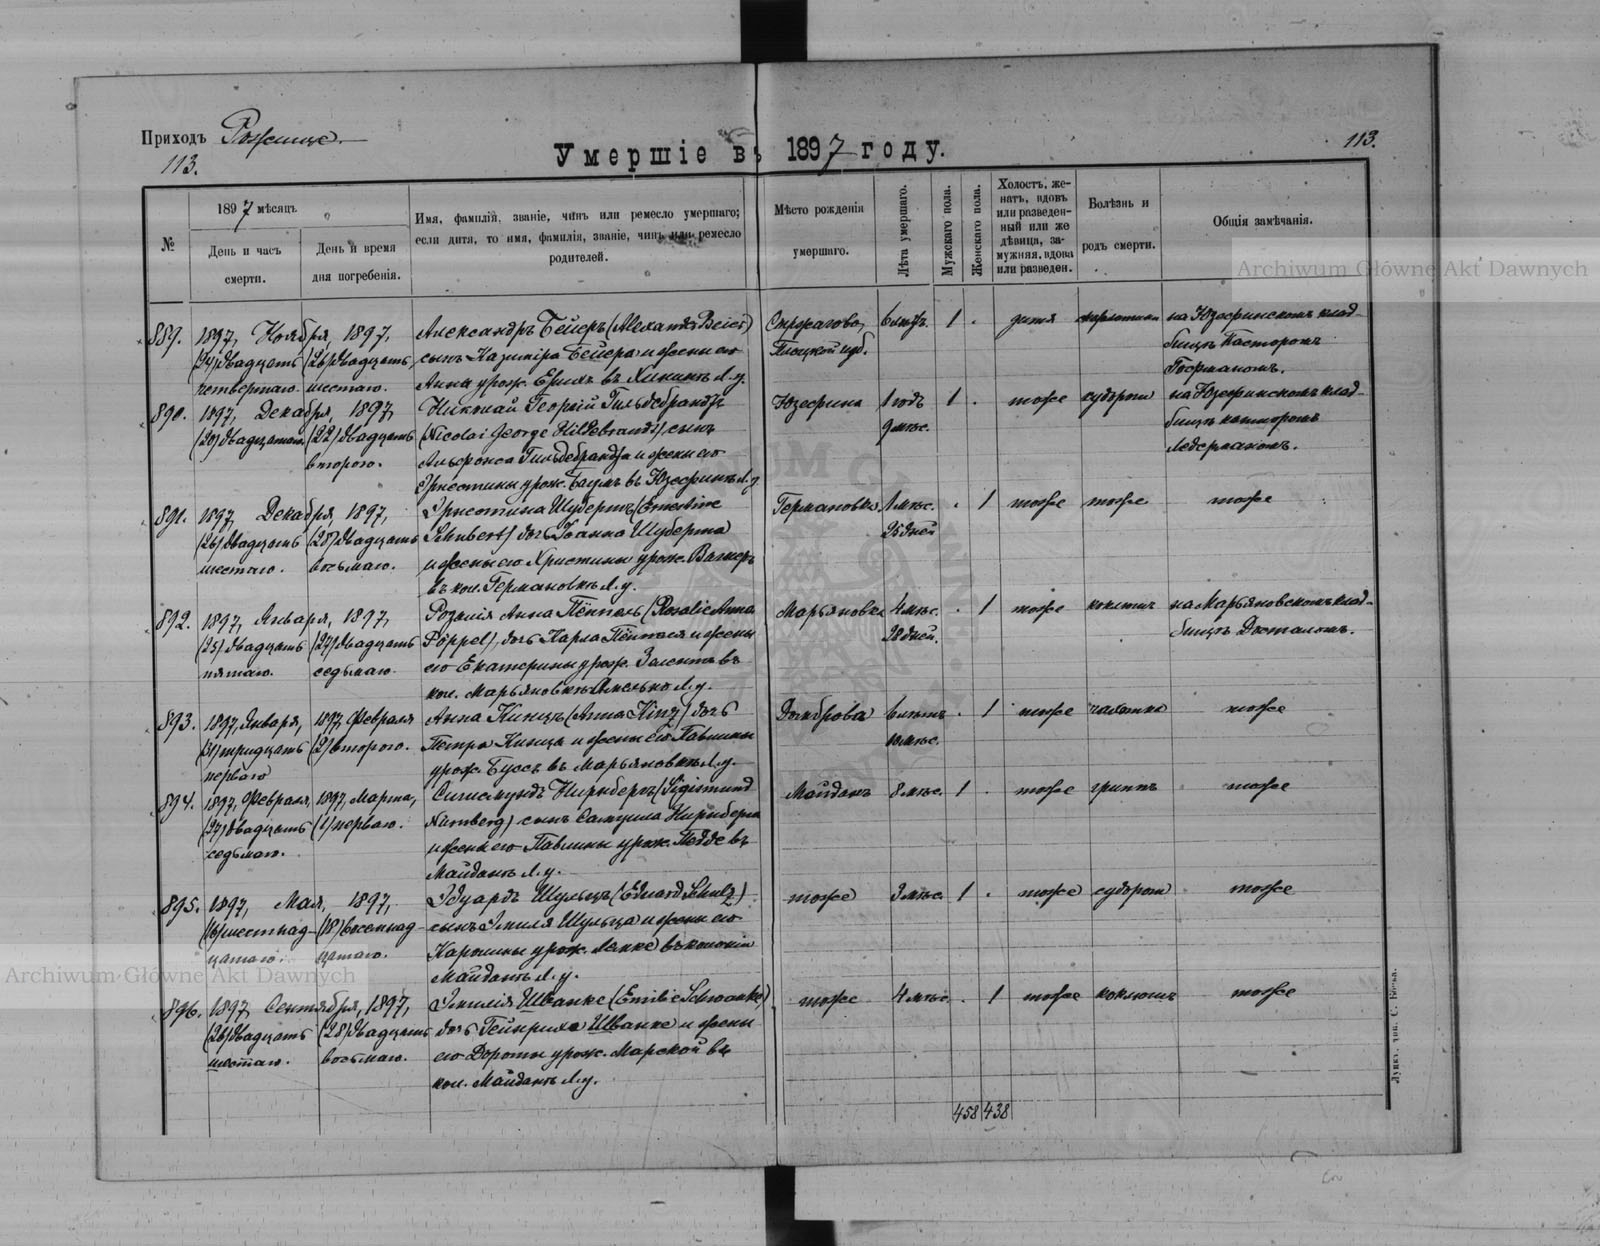 Приходъ Рожище.
113.
Умершіе въ 1897 году.
113.
№
1897 мѣсяцъ
День и часъ
смерти.
День и время
дня погребенія.
Имя, фамилія, званіе, чинъ или ремесло умершаго;
если дитя, то имя, фамилія, званіе, чинъ или ремесло
родителей.
Мѣсто рожденія
умершаго.
Лѣта умершаго.
Мужскаго пола.
Женскаго пола.
Холостъ, же-
натъ, вдовъ
или разведен-
ный или же
дѣвица, за-
мужняя, вдова
или разведен.
Болѣзнь и
родъ смерти.
Общія замѣчанія.
Archiwum Główne Akt Dawnych
889.
1897, Ноября, 1897,
(24) двадцать (26) двадцать
четвертаго. шестаго.
Александръ Бейеръ (Alexander Beier)
сынъ Казиміра Бейера и жены его
Анна урож. въ Л.у.
Плоцкой губ.
1
дитя
на Юзефинскомъ клад-
бищѣ Пасторомъ
890.
1897, Декабря, 1897,
(20) двадцатаго. (22) двадцать
втораго.
Николай Георгій Гильдебрандъ
(Nicolai George Hildebrandt) сынъ
Альфонса Гильдебранда и жены его
Эрнестины урож. Баумъ въ Юзефинѣ Л.у.
Юзефина
1 годъ
9 мѣс.
1
тоже
судороги
на Юзефинскомъ клад-
бищѣ канторомъ
Ледерманомъ.
891.
1897, Декабря, 1897,
(26) двадцать (28) двадцать
шестаго. восьмаго.
Эрнестина Шубертъ (Ernestine
Schubert) дочь Іоанна Шуберта
и жены его Христины урож. Вагнеръ
въ кол. Германовкѣ Л.у.
Германовка
1 мѣс.
25 дней
1
тоже
тоже
тоже
892.
1897, Января, 1897,
(25) двадцать (27) двадцать
пятаго. седьмаго.
Розалія Анна Пёппель (Rosalie Anna
Pöppel), дочь Карла Пёппеля и жены
его Екатерины урож. въ
кол. Марьяновкѣ Л.у.
Марьяновка
4 мѣс.
28 дней.
1
тоже
коклюшъ
на Марьяновскомъ клад-
бищѣ Досталомъ.
893.
1897, Января, 1897, Февраля
(31) тридцать (2) втораго.
перваго
Анна Кинцъ (Anna Kinz) дочь
Петра Кинца и жены его Павлины
урож. Буссъ въ Марьяновкѣ Л.у.
Домброва
6 лѣтъ
10 мѣс.
1
тоже
чахотка
тоже
894.
1897, Февраля, 1897, Марта,
(27) двадцать (1) перваго.
седьмаго.
Сигисмундъ Нирнбергъ (Sigismund
Nürnberg) сынъ Самуила Нирнберга
и жены его Павлины урож. въ
Майданѣ Л.у.
Майданъ
8 мѣс.
1
тоже
гриппъ
тоже
895.
1897, Мая, 1897,
(16) шестнад- (18) восемнад-
цатаго. цатаго.
Эдуардъ Шульцъ (Eduard Schulz)
сынъ Эмиля Шульца и жены его
Каролины урож. въ колоніи
Майданѣ Л.у.
тоже
3 мѣс.
1
тоже
судороги
тоже
Archiwum Główne Akt Dawnych
896.
1897, Сентября, 1897,
(26) двадцать (28) двадцать
шестаго. восьмаго.
Эмилія Шванке (Emilie Schwanke)
дочь Гейнриха Шванке и жены
его Дороты урож. Марской въ
кол. Майданѣ Л.у.
тоже
4 мѣс.
1
тоже
коклюшъ
тоже
458 438